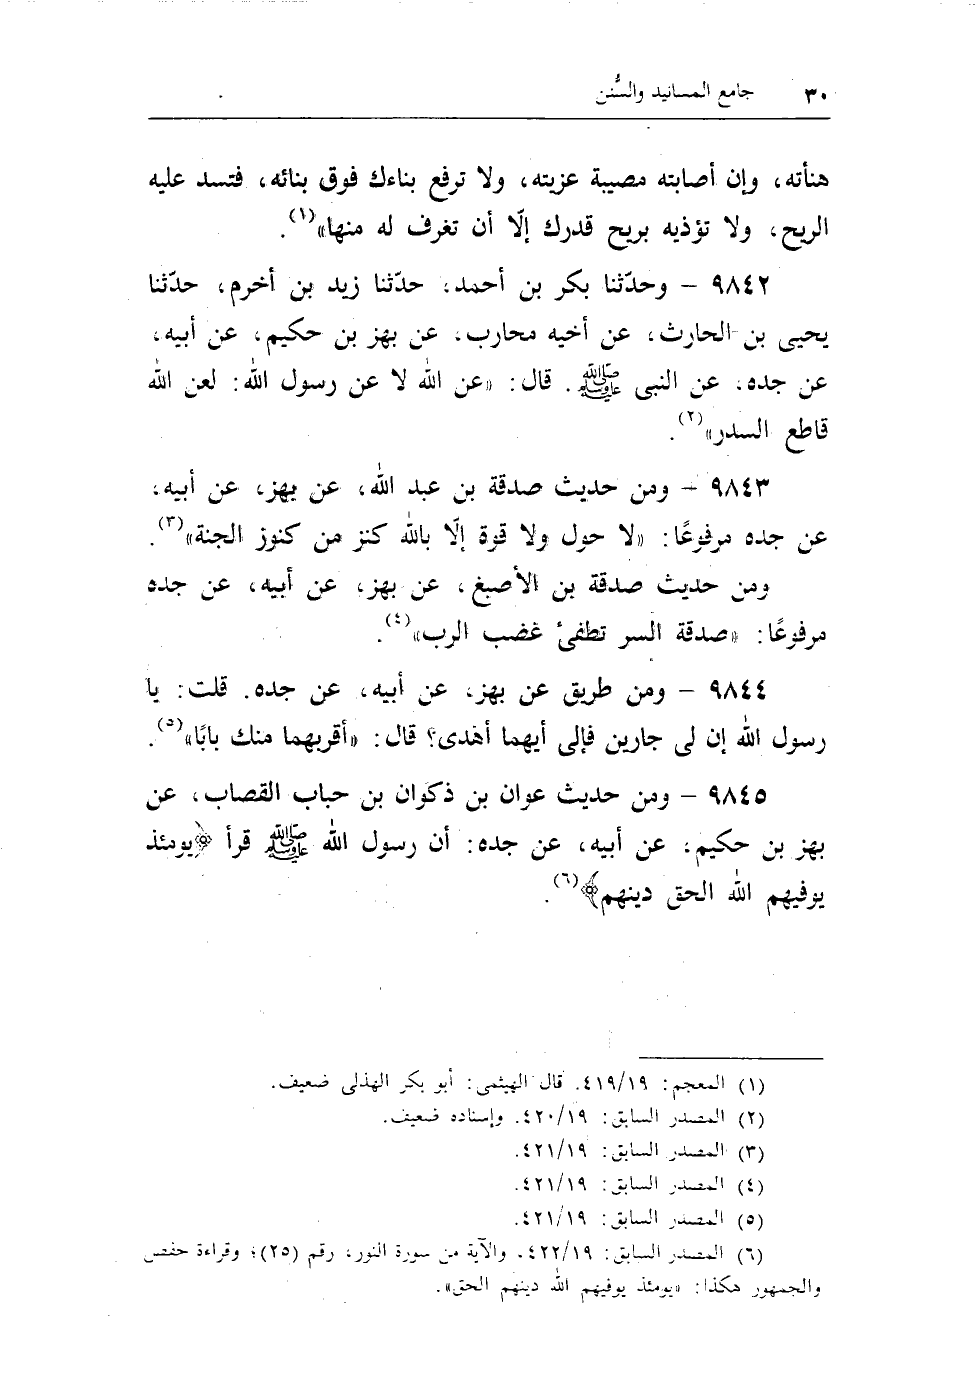 ٣٠ جامع المسانيد والسُّنن
هنأته، وإن أصابته مصيبة عزيته، ولا ترفع بناءك فوق بنائه، فتسد عليه
الريح، ولا تؤذيه بريح قدرك إلّا أن تغرف له منها»(١).
٩٨٤٢ – وحدّثنا بكر بن أحمد، حدّثنا زيد بن أخرم، حدّثنا
يحيى بن الحارث، عن أخيه محارب، عن بهز بن حكيم، عن أبيه،
عن جده، عن النبى ﷺ. قال: «عن الله لا عن رسول الله: لعن الله
قاطع السدر»(٢).
٩٨٤٣ – ومن حديث صدقة بن عبد الله، عن بهز، عن أبيه،
عن جده مرفوعًا: «لا حول ولا قوة إلّا بالله كنز من كنوز الجنة»(٣).
ومن حديث صدقة بن الأصبغ، عن بهز، عن أبيه، عن جده
مرفوعًا: «صدقة السر تطفئ غضب الرب»(٤).
٩٨٤٤ – ومن طريق عن بهز، عن أبيه، عن جده. قلت: يا
رسول الله إن لى جارين فإلى أيهما أهدى؟ قال: «أقربهما منك بابًا»(٥).
٩٨٤٥ – ومن حديث عوان بن ذكوان بن حباب القصاب، عن
بهز بن حكيم، عن أبيه، عن جده: أن رسول الله ﷺ قرأ ﴿يومئذ
يوفيهم الله الحق دينهم﴾(٦).
(١) المعجم: ٤١٩/١٩. قال الهيثمى: أبو بكر الهذلى ضعيف.
(٢) المصدر السابق: ٤٢٠/١٩. وإسناده ضعيف.
(٣) المصدر السابق: ٤٢١/١٩.
(٤) المصدر السابق: ٤٢١/١٩.
(٥) المصدر السابق: ٤٢١/١٩.
(٦) المصدر السابق: ٤٢٢/١٩. والآية من سورة النور، رقم (٢٥)؛ وقراءة حفص
والجمهور هكذا: «يومئذ يوفيهم الله دينهم الحق».